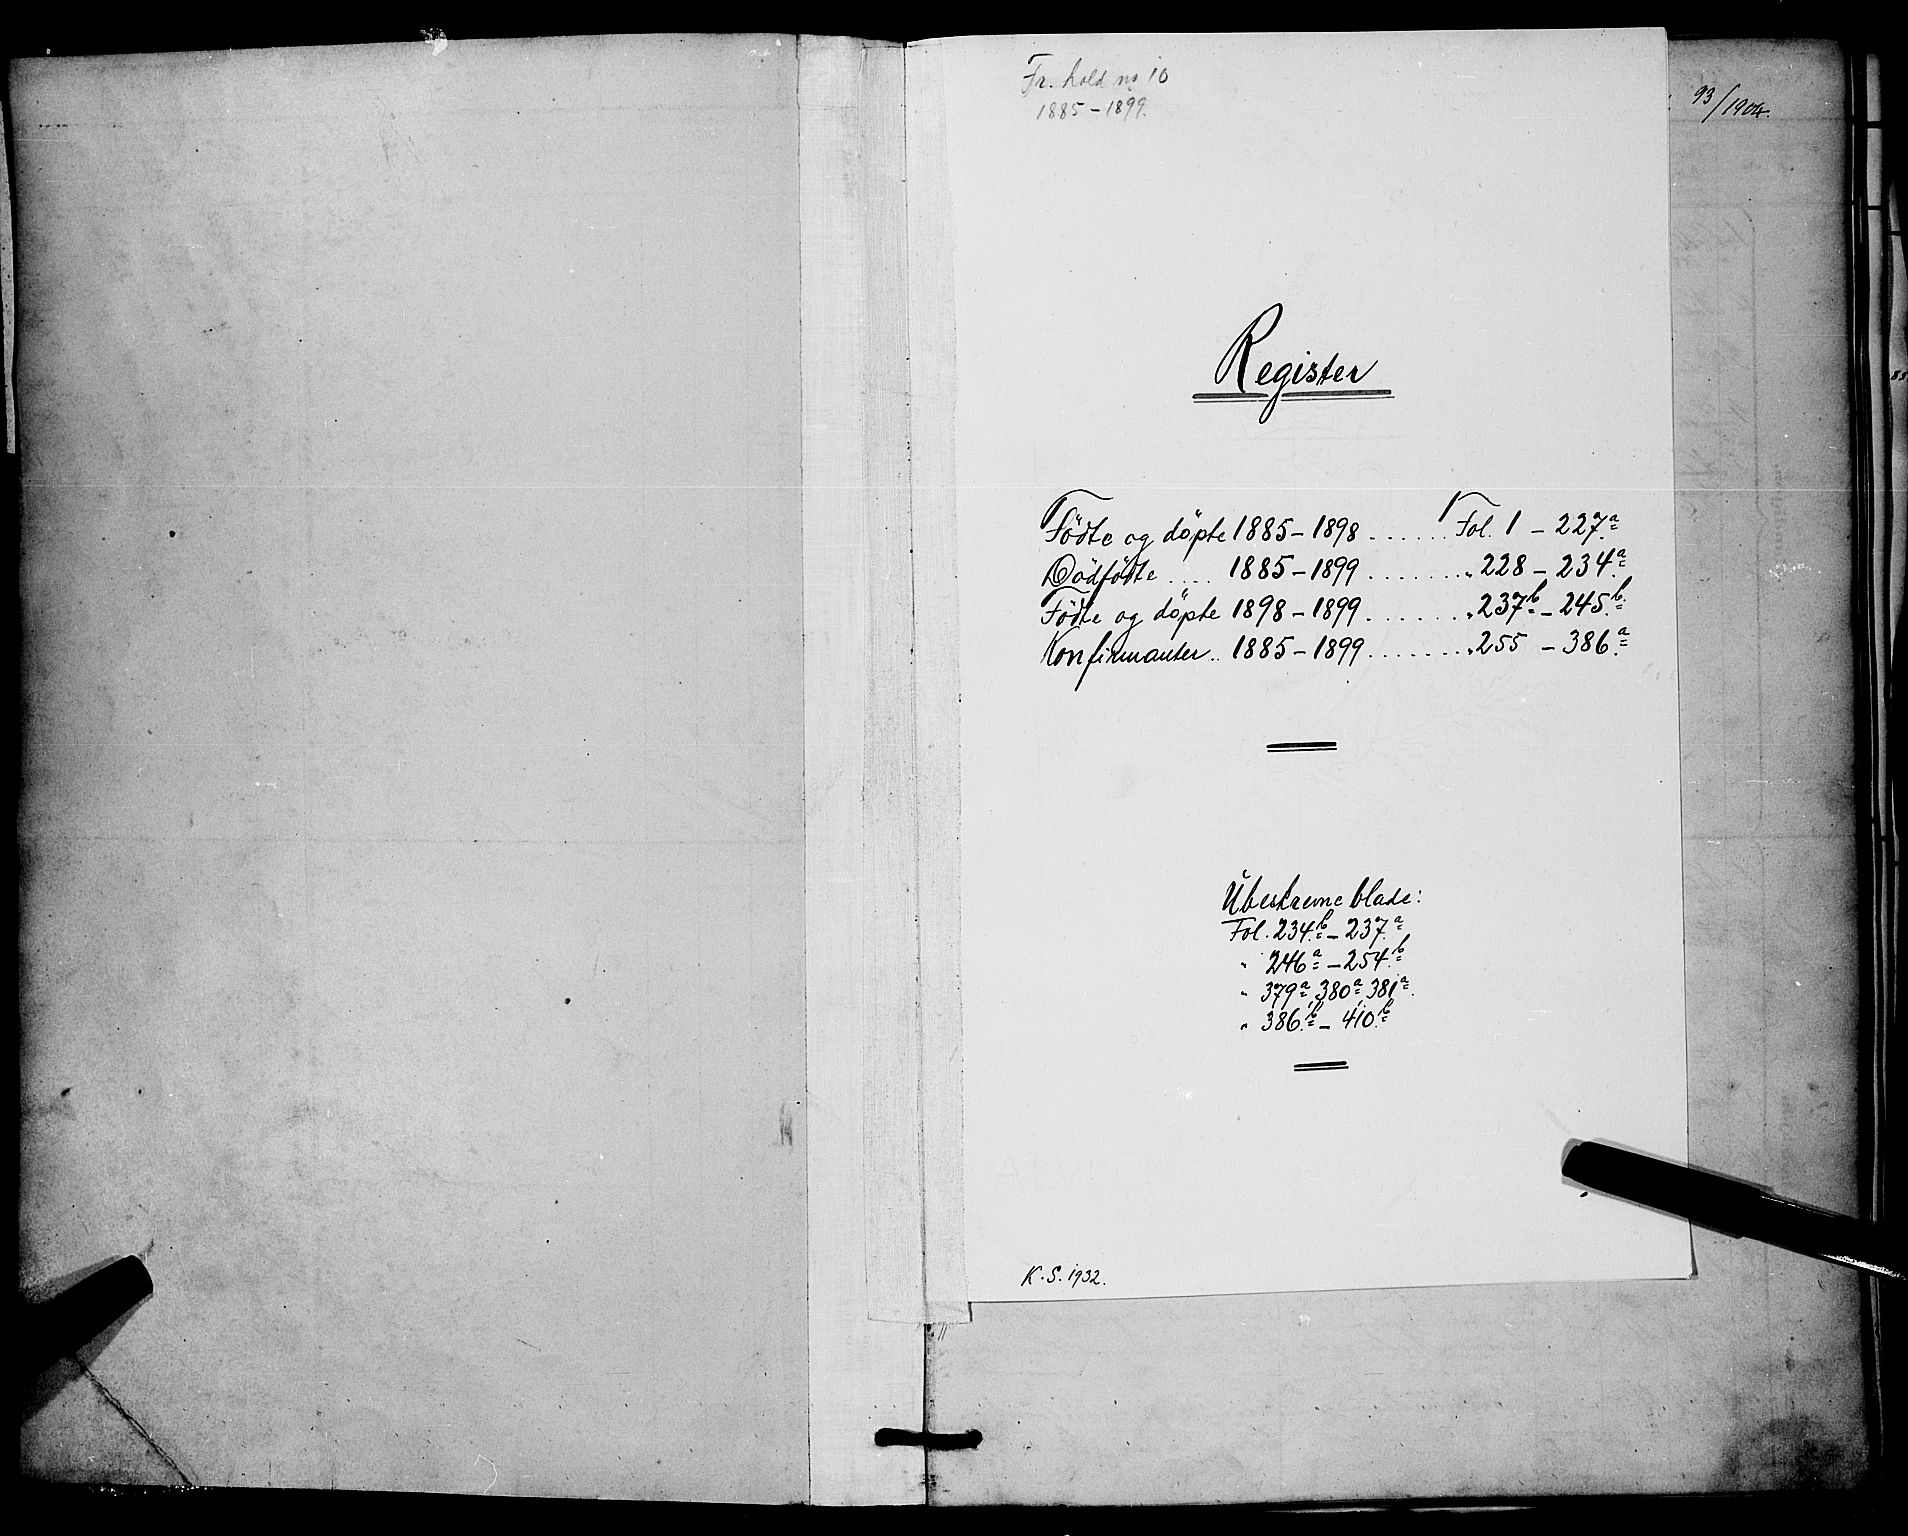 Fr. hold no 10
1885-1899.
93/1904.
Register
Födte og döpte 1885-1898 ...... Fol. 1 - 227.a
Dödfödte .... 1885-1899 ....... " 228 - 234.a
Födte og döpte 1898-1899 ....... " 237.b - 245.b
Konfirmanter .. 1885-1899 ....... " 255 - 386.a
Ubeskrevne blade:
Fol. 234.b - 237.a
" 246a - 254.b
" 379a, 380a, 381a.
" 386.b - 410.b
K.S. 1932.